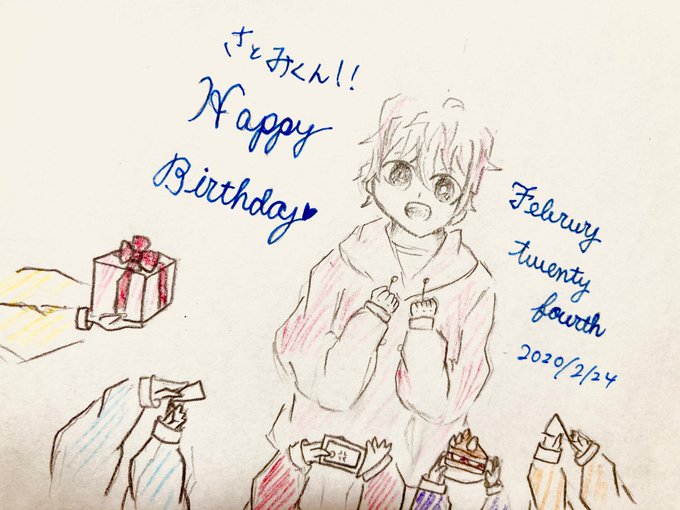 さとみくん!!
Happy
Birthday♥
Februry
twenty
fourth
2020/2/24